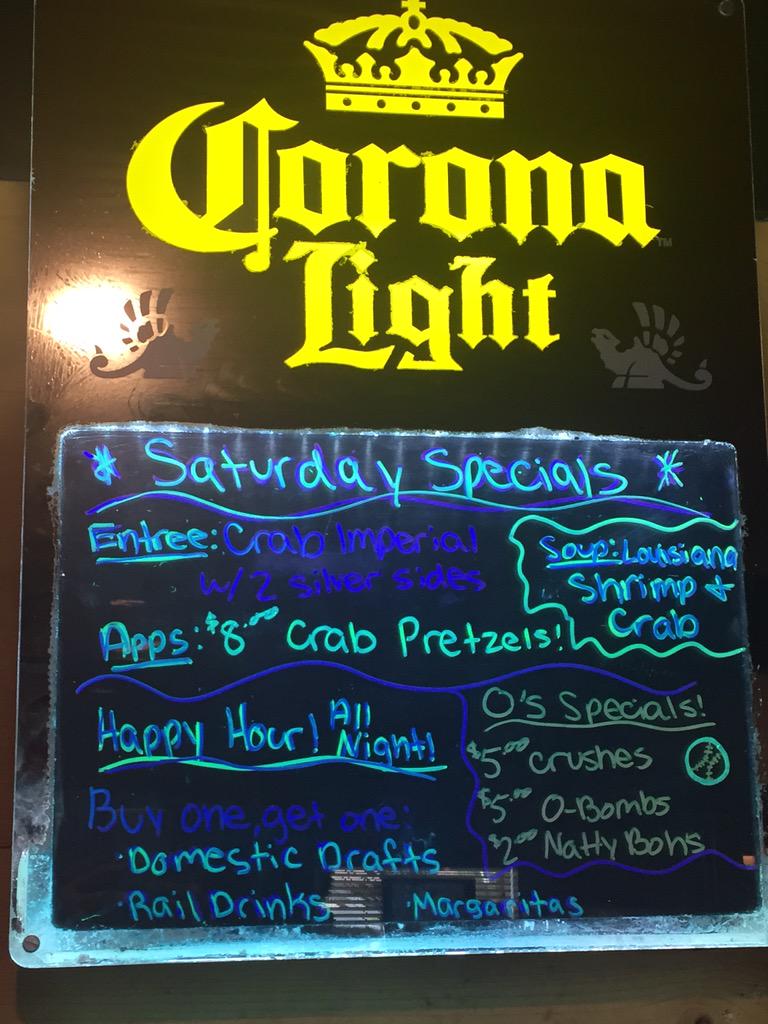 Corona
Light
TM
* Saturday Specials *
Entree: Crab Imperial
w/ 2 silver sides
Soup: Louisiana
Shrimp +
Crab
Apps: $8.00 Crab Pretzels!
Happy Hour! All
Night!
Buy one, get one:
·Domestic Drafts
·Rail Drinks ·Margaritas
O's Specials!
$5.00 crushes
$5.00 O-Bombs
$2.00 Natty Bohs